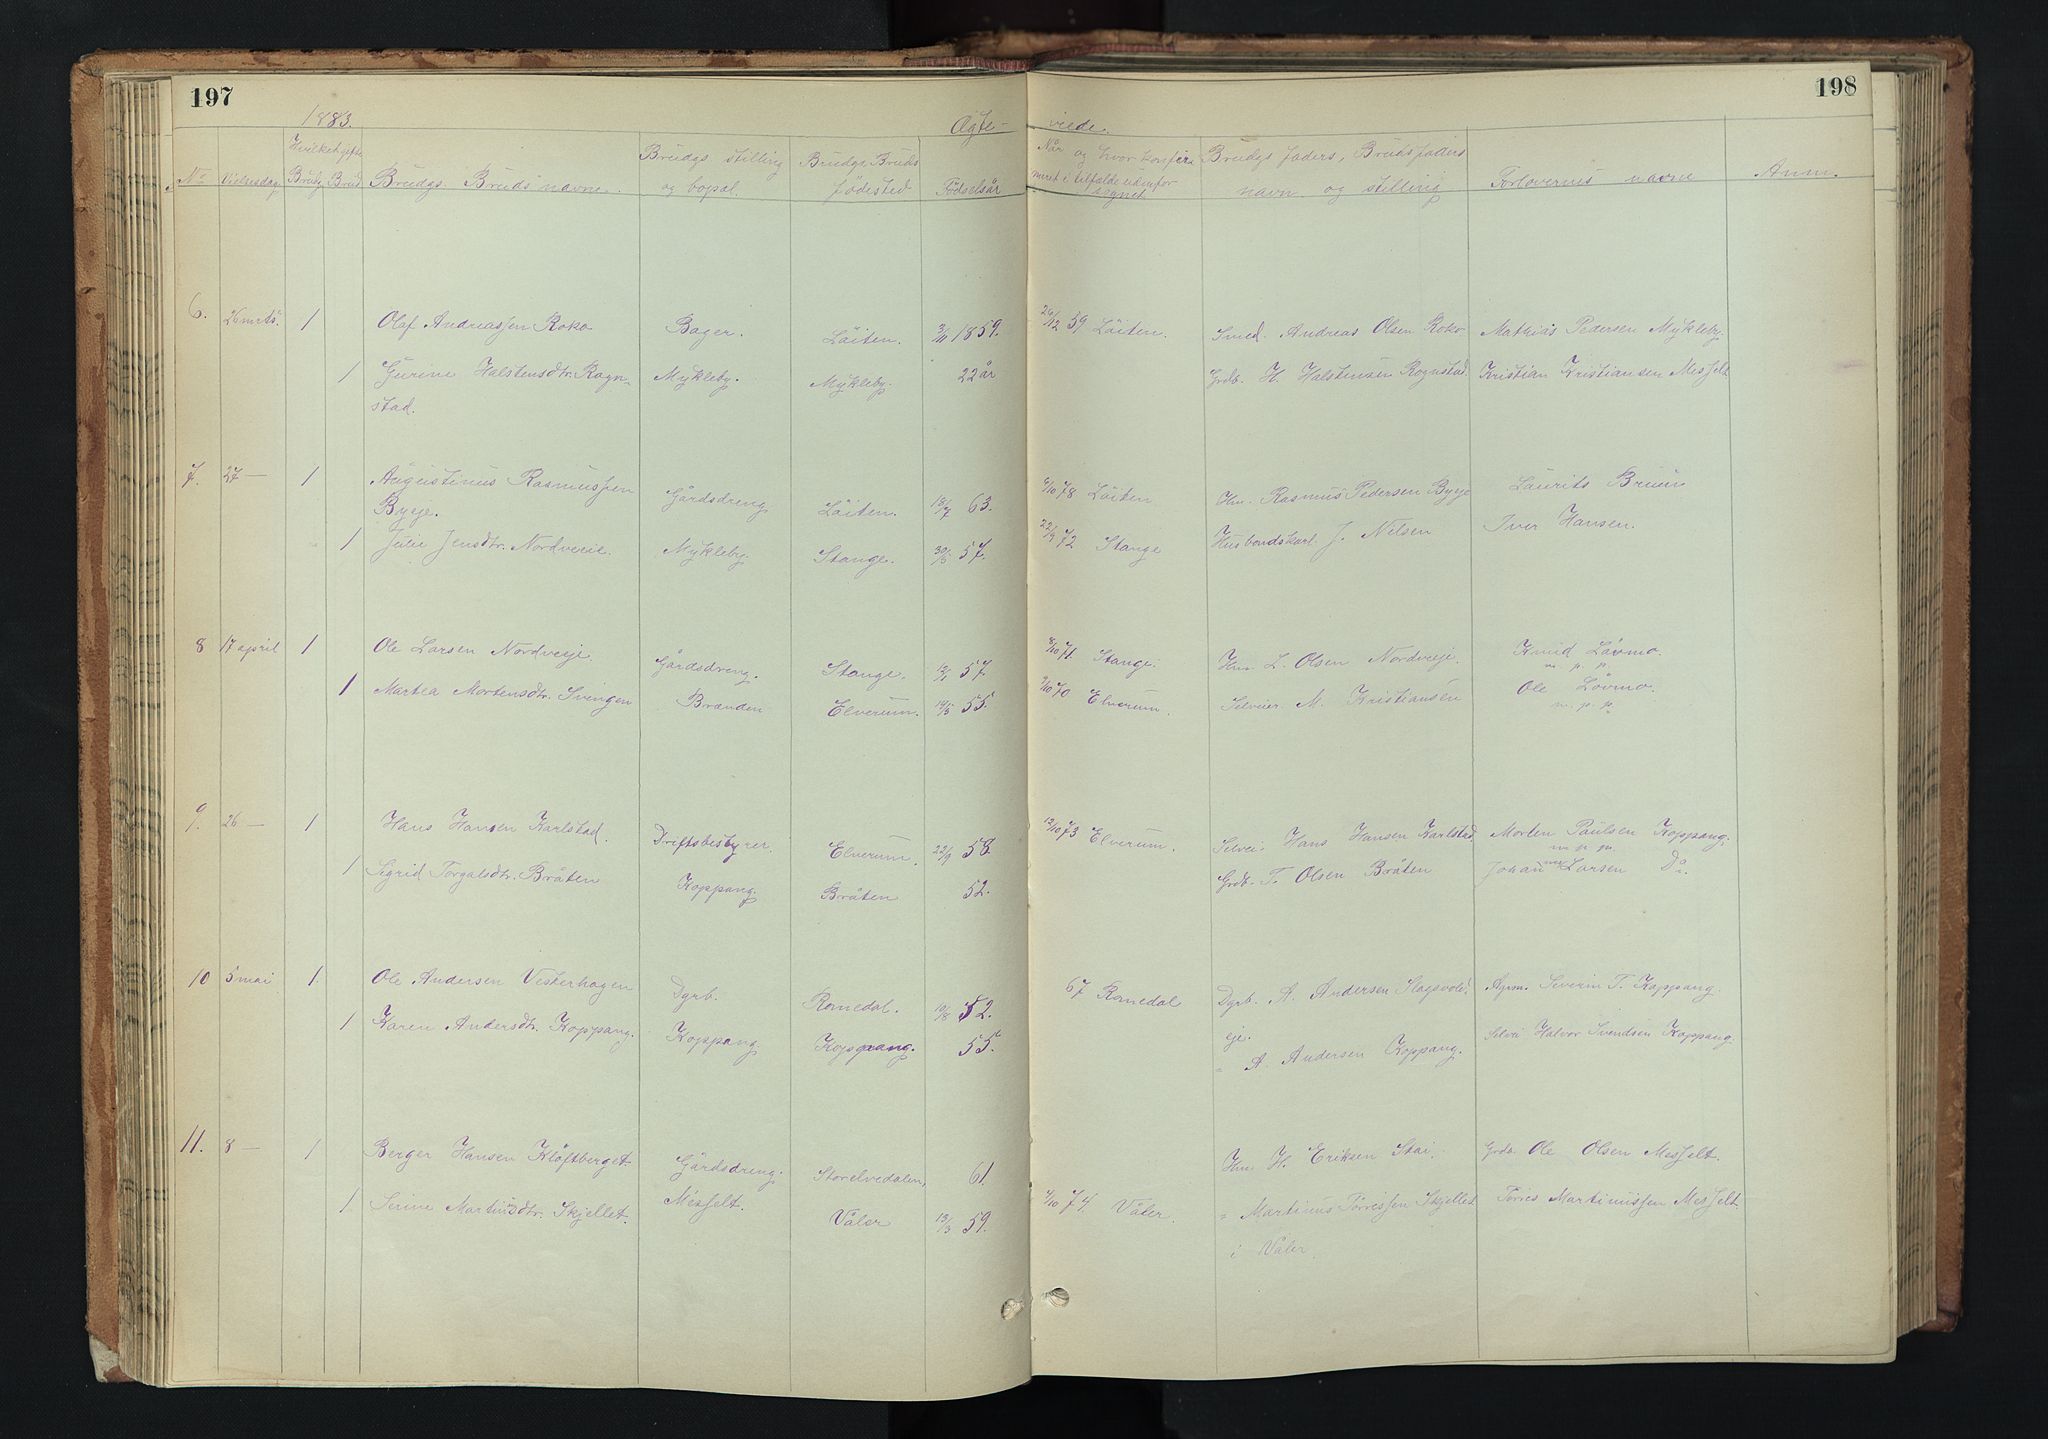 197
198
1883.
Ægte-
viede.
No
Vielsesdag
Hvilket gifte
Brudg
Brud
Brudgs. Bruds navne.
Brudgs stilling
og bopæl.
Brudgs. Bruds
fødested
Fødselsår
Når og hvor konfir
meret i tilfælde udenfor
sognet
Brudgs faders, Bruds faders
navn og stilling
Forlovernes navne
Anm.
6. 26 mrts. 1 Olaf Andreassen Roko Bager. Löiten. 1859. 59 Löiten. Smed. Andreas Olsen Roko Mathias Pedersen Mykleby.
1 Gurine Halstensdtr. Rogn- Mykleby. Mykleby. 22 år Grdb. H. Halstensen Rognstad Kristian Kristiansen Messelt
stad.
7. 27 — 1 Augustinus Rasmussen Gårdsdreng Löiten. 18/7 63. 6/10 78 Löiten Hm. Rasmus Pedersen Bysje Laurits Bruun
Bysje.
1 Julie Jensdtr. Nordveie. Mykleby. Stange. 57. 22/9 72 Stange Husbondskarl J. Nilsen Iver Hansen.
8 17 april 1 Ole Larsen Nordveje. Gårdsdreng. Stange. 57. 8/10 71. Stange. Hm L. Olsen Nordveje. Knud Lövmo.
m. p. p.
1 Martea Mortensdtr. Svingen Brænden Elverum. 55. 70 Elverum. Selveier M. Kristiansen Ole Lövmo.
m. p. p.
9. 26 — 1 Hans Hansen Karlstad. Driftsbestyrer. Elverum. 22/9 58. 12/10 73 Elverum. Selvei. Hans Hansen Karlstad. Morten Paulsen Koppang.
m. p. p.
1 Sigrid Torgalsdtr. Bråten Koppang. Bråten 52. Grdb. T. Olsen Bråten Johan Larsen Do.
10 5 mai 1. Ole Andersen Vesterhagen Dgrb. Romedal. 10/8 52. 67 Romedal Dgrb. A. Andersen Slagsvold- Severin T. Koppang.
eje.
1 Karen Andersdtr. Koppang. Koppang Koppang. 55. " A. Andersen Koppang. Selvei Halvor Svendsen Koppang.
11. 8 — 1 Berger Hansen Klöftberget Gårdsdreng. Storelvedalen, 61. Hm H. Eriksen Stai. Grdb. Ole Olsen Messelt.
1. Serine Martinsdtr. Skjellet. Messelt. Våler 13/3 59. 74 Våler. " Martinus Törrissen Skjellet Törres Martinussen Messelt
i Våler.